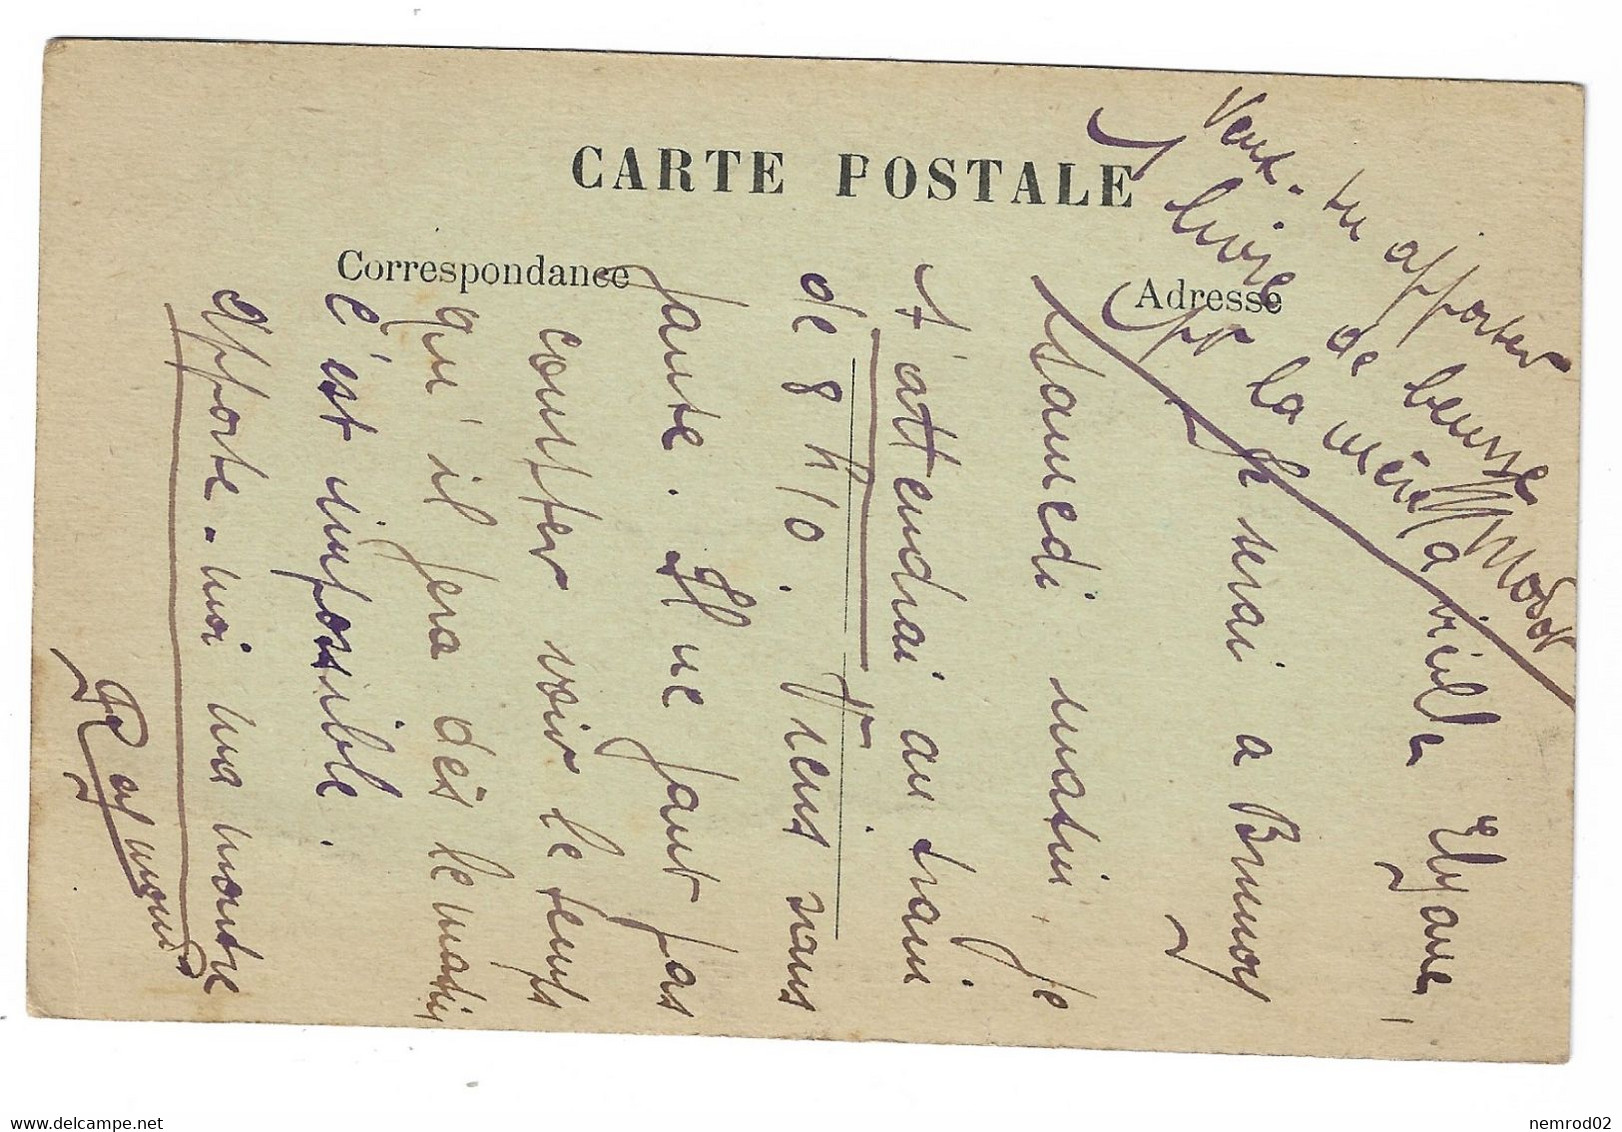 CARTE POSTALE
Correspondance
Adresse
Veux-tu apporter
1 livre de beurre
pr la mère Modot
Ma vieille Elyane,
Je serai a Brunoy
samedi matin, je
t'attendrai au train
de 8 h 10. Viens sans
faute. Il ne faut pas
compter voir le temps
qu'il fera dès le matin
c'est impossible.
Apporte-moi ma montre
Raymond
nemrod02